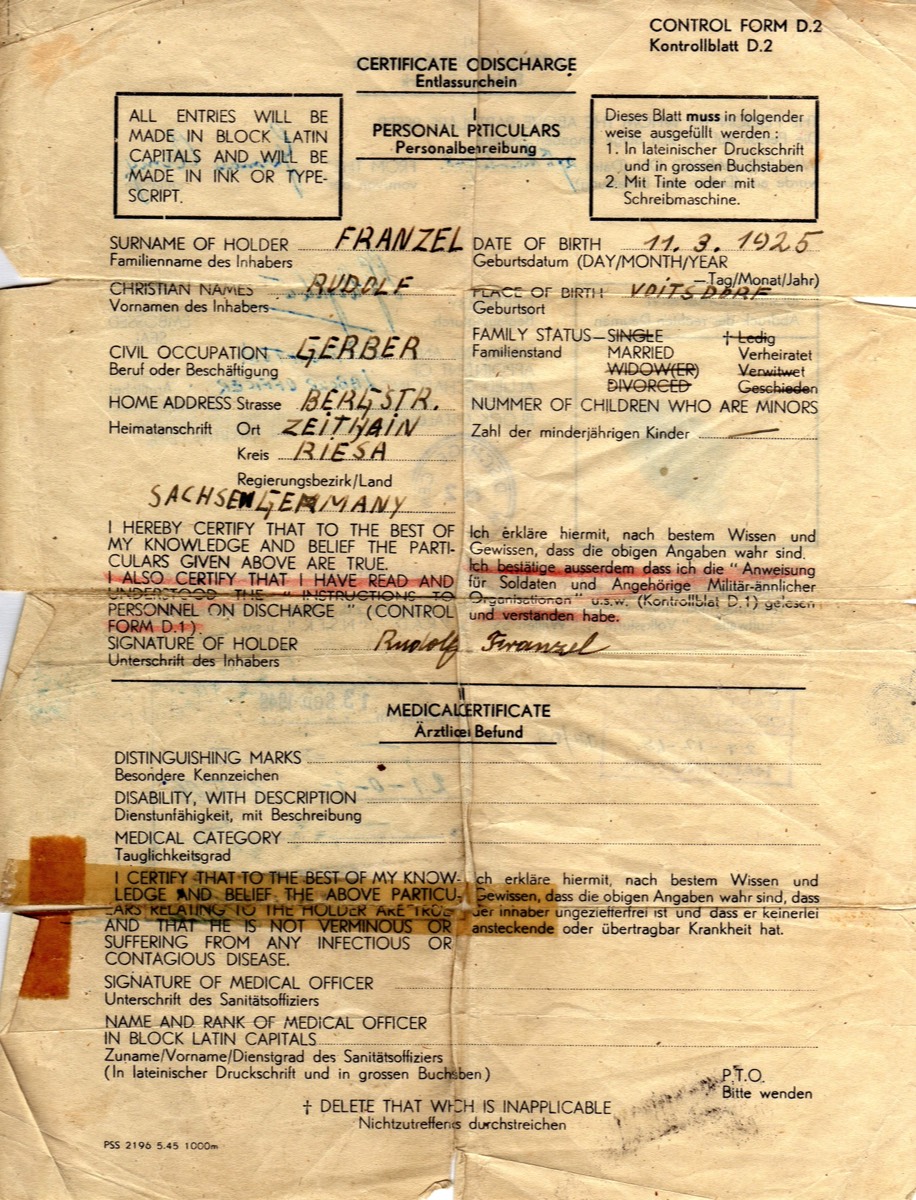 CONTROL FORM D.2
Kontrollblatt D.2
CERTIFICATE O DISCHARGE
Entlassurchein
ALL ENTRIES WILL BE
MADE IN BLOCK LATIN
CAPITALS AND WILL BE
MADE IN INK OR TYPE-
SCRIPT.
I
PERSONAL PRTICULARS
Personalbehreibung
Dieses Blatt muss in folgender
weise ausgefüllt werden :
1. In lateinischer Druckschrift
und in grossen Buchstaben
2. Mit Tinte oder mit
Schreibmaschine.
SURNAME OF HOLDER FRANZEL
Familienname des Inhabers
CHRISTIAN NAMES RUDOLF
Vornamen des Inhabers
CIVIL OCCUPATION GERBER
Beruf oder Beschäftigung
HOME ADDRESS Strasse BERGSTR.
Heimatanschrift Ort ZEITHAIN
Kreis RIESA
Regierungsbezirk/Land
SACHSEN GERMANY
DATE OF BIRTH 11. 3. 1925
Geburtsdatum (DAY/MONTH/YEAR
—Tag/Monat/Jahr)
PLACE OF BIRTH VOITSDORF
Geburtsort
FAMILY STATUS—SINGLE † Ledig
Familienstand MARRIED Verheiratet
WIDOW(ER) Verwitwet
DIVORCED Geschieden
NUMMER OF CHILDREN WHO ARE MINORS
Zahl der minderjährigen Kinder —
I HEREBY CERTIFY THAT TO THE BEST OF
MY KNOWLEDGE AND BELIEF THE PARTI-
CULARS GIVEN ABOVE ARE TRUE.
I ALSO CERTIFY THAT I HAVE READ AND
UNDERSTOOD THE " INSTRUCTIONS TO
PERSONNEL ON DISCHARGE " (CONTROL
FORM D.1).
Ich erkläre hiermit, nach bestem Wissen und
Gewissen, dass die obigen Angaben wahr sind.
Ich bestätige ausserdem dass ich die " Anweisung
für Soldaten und Angehörige Militär-ännlicher
Organisationen " u.s.w. (Kontrollblat D.1) gelesen
und verstanden habe.
SIGNATURE OF HOLDER Rudolf Franzel
Unterschrift des Inhabers
II
MEDICAL ERTIFICATE
Ärztlicer Befund
DISTINGUISHING MARKS
Besondere Kennzeichen
DISABILITY, WITH DESCRIPTION
Dienstunfähigkeit, mit Beschreibung
MEDICAL CATEGORY
Tauglichkeitsgrad
I CERTIFY THAT TO THE BEST OF MY KNOW-
LEDGE AND BELIEF THE ABOVE PARTICU-
LARS RELATING TO THE HOLDER ARE TRUE
AND THAT HE IS NOT VERMINOUS OR
SUFFERING FROM ANY INFECTIOUS OR
CONTAGIOUS DISEASE.
Ich erkläre hiermit, nach bestem Wissen und
Gewissen, dass die obigen Angaben wahr sind, dass
der inhaber ungezieferfrei ist und dass er keinerlei
ansteckende oder übertragbar Krankheit hat.
SIGNATURE OF MEDICAL OFFICER
Unterschrift des Sanitätsoffiziers
NAME AND RANK OF MEDICAL OFFICER
IN BLOCK LATIN CAPITALS
Zuname/Vorname/Dienstgrad des Sanitätsoffiziers
(In lateinischer Druckschrift und in grossen Buchsben)
P.T.O.
Bitte wenden
† DELETE THAT WHCH IS INAPPLICABLE
Nichtzutreffends durchstreichen
PSS 2196 5.45 1000m